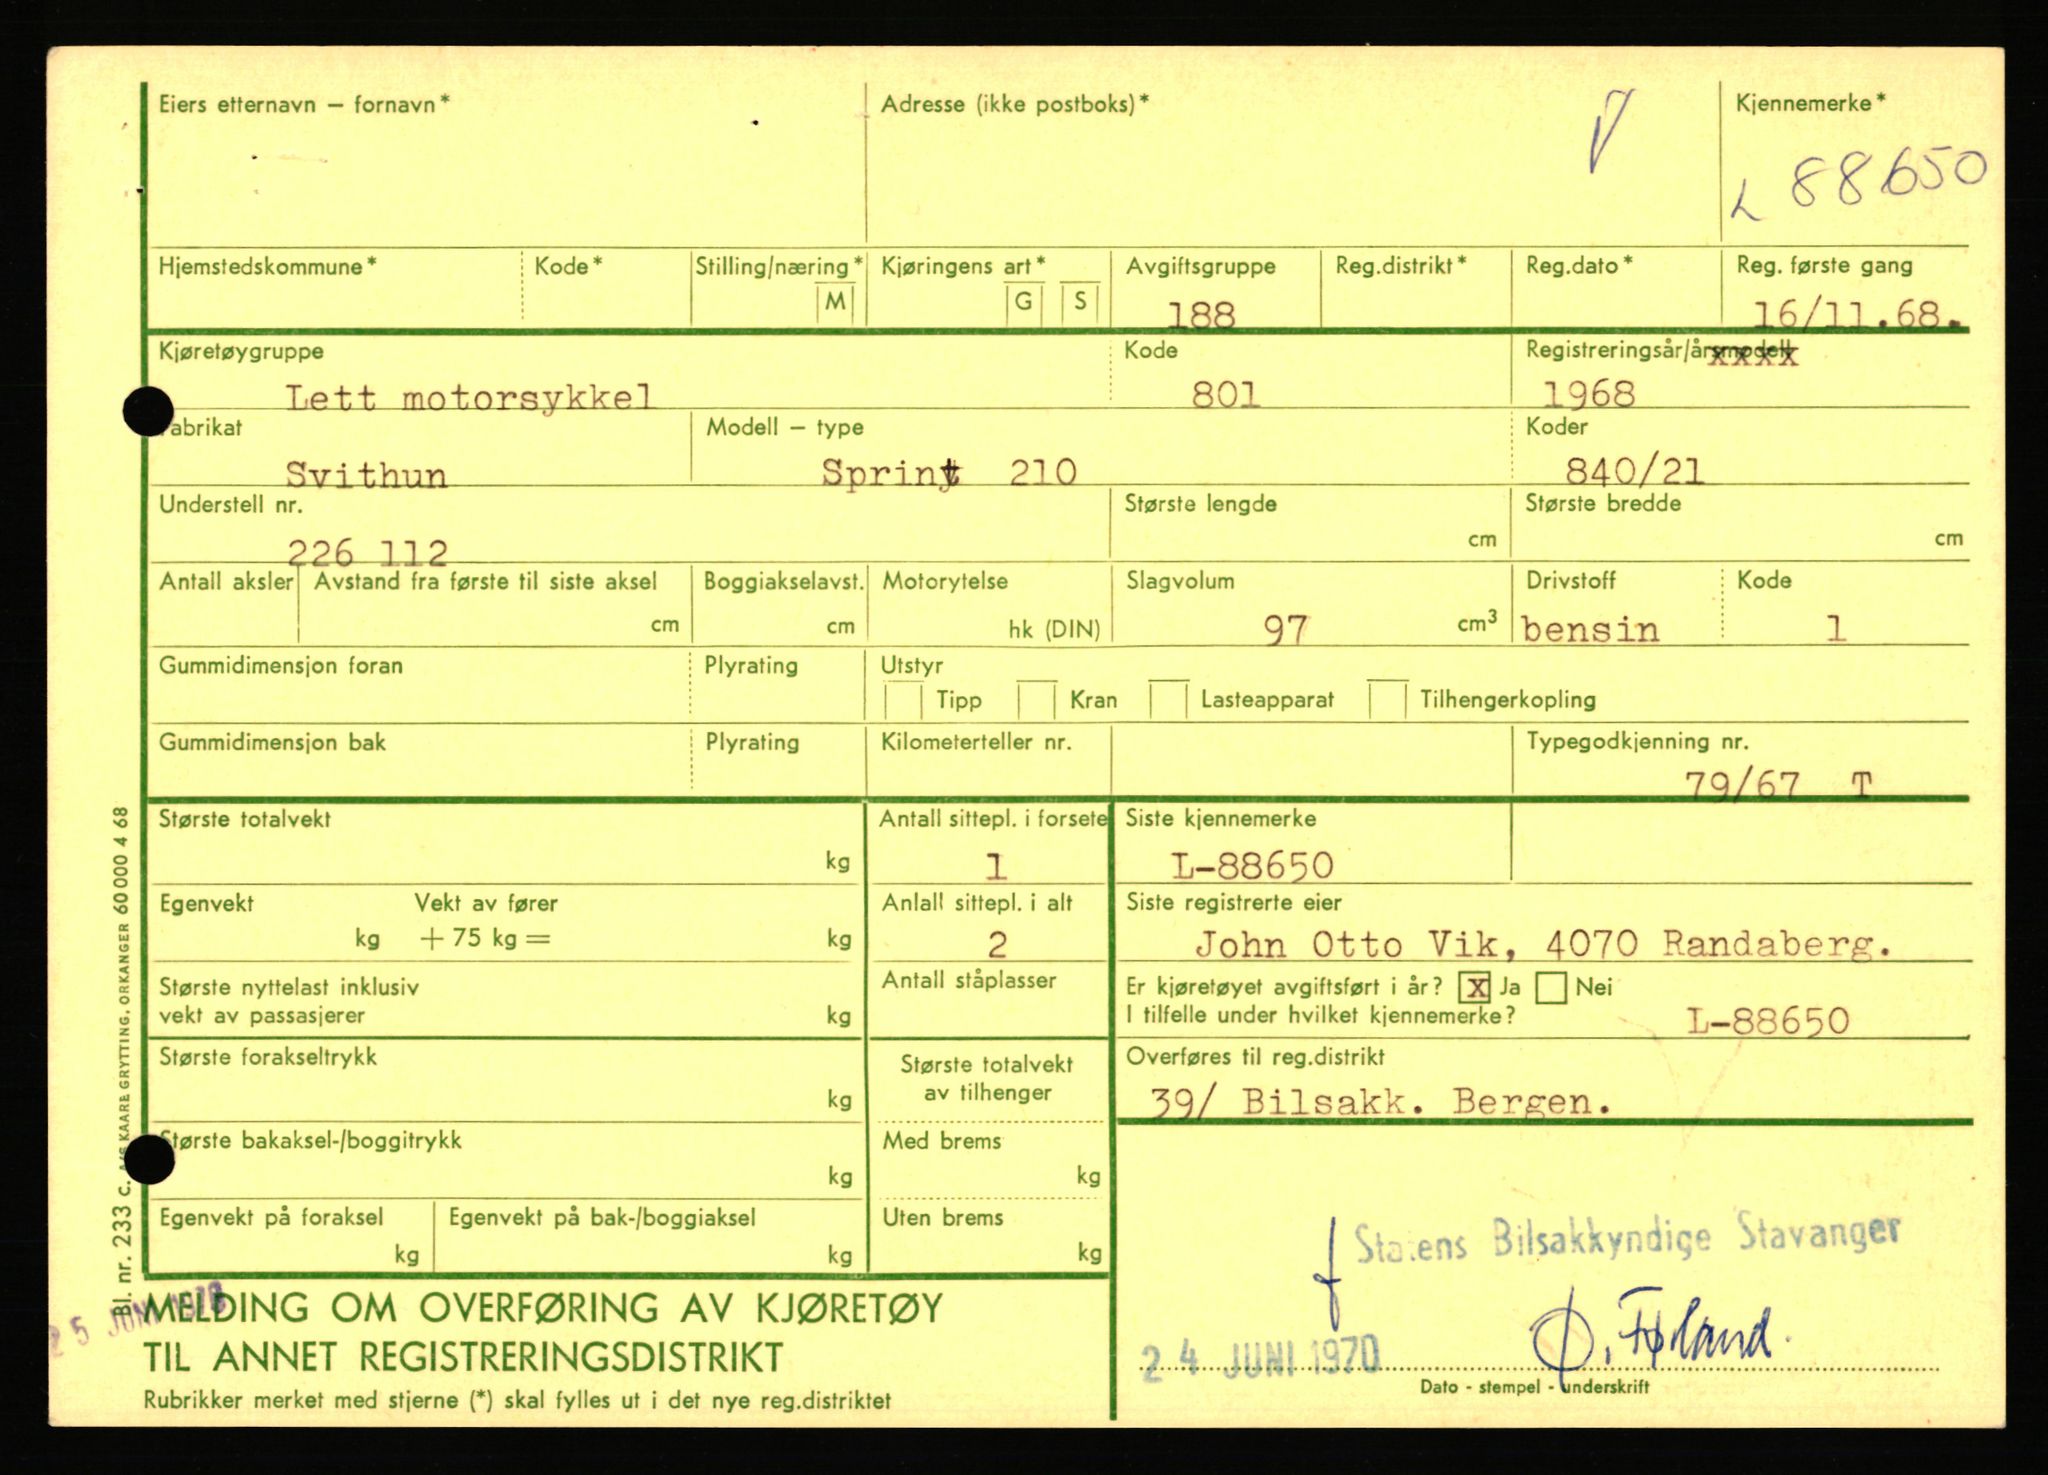 Eiers etternavn – fornavn* Adresse (ikke postboks)* Kjennemerke*
L 88650
Hjemstedskommune* Kode* Stilling/næring* M Kjøringens art* G S Avgiftsgruppe Reg.distrikt* Reg.dato* Reg. første gang
188 16/11.68.
Kjøretøygruppe Kode Registreringsår/årsmodell
Lett motorsykkel 801 1968
Fabrikat Modell – type Koder
Svithun Sprint 210 840/21
Understell nr. Største lengde cm Største bredde cm
226 112
Antall aksler Avstand fra første til siste aksel Boggiakselavst. Motorytelse Slagvolum Drivstoff Kode
cm cm hk (DIN) 97 cm³ bensin 1
Gummidimensjon foran Plyrating Utstyr
Tipp Kran Lasteapparat Tilhengerkopling
Gummidimensjon bak Plyrating Kilometerteller nr. Typegodkjenning nr.
79/67 T
Største totalvekt Antall sittepl. i forsete Siste kjennemerke
kg 1 L-88650
Egenvekt Vekt av fører Anlall sittepl. i alt Siste registrerte eier
kg + 75 kg = kg 2 John Otto Vik, 4070 Randaberg.
Største nyttelast inklusiv Antall ståplasser Er kjøretøyet avgiftsført i år? X Ja Nei
vekt av passasjerer kg I tilfelle under hvilket kjennemerke? L-88650
Største forakseltrykk Største totalvekt Overføres til reg.distrikt
kg av tilhenger 39/ Bilsakk. Bergen.
Største bakaksel-/boggitrykk Med brems
kg kg
Egenvekt på foraksel Egenvekt på bak-/boggiaksel Uten brems
kg kg kg
f Statens Bilsakkyndige Stavanger
MELDING OM OVERFØRING AV KJØRETØY
TIL ANNET REGISTRERINGSDISTRIKT
Rubrikker merket med stjerne (*) skal fylles ut i det nye reg.distriktet
24 JUNI 1970 Ø. Føland.
Dato - stempel - underskrift
25 JUNI 1970
Bl. nr. 233 C. A/S KAARE GRYTTING, ORKANGER 60 000 4 68